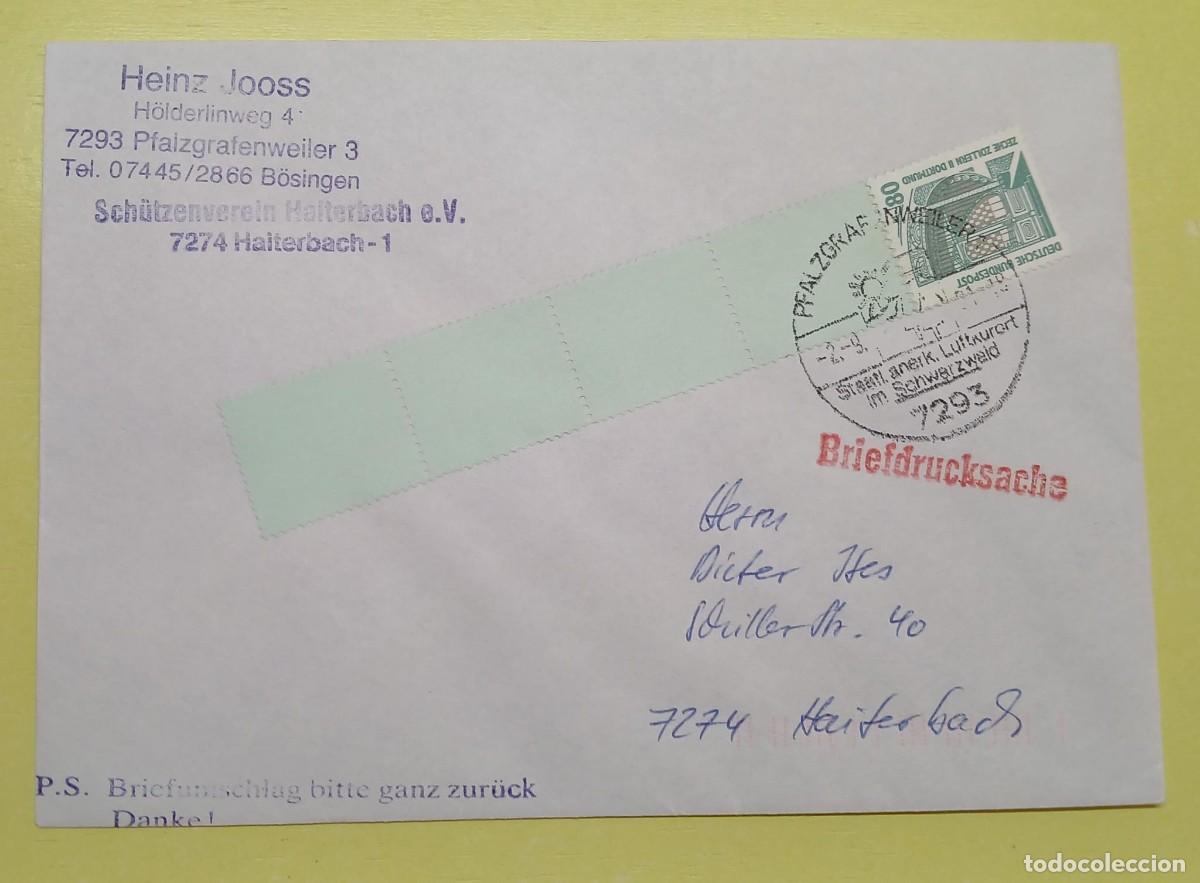 Heinz Jooss
Hölderlinweg 4
7293 Pfalzgrafenweiler 3
Tel. 07445/2866 Bösingen
Schützenverein Haiterbach e.V.
7274 Haiterbach-1
ZECHE ZOLLERN II DORTMUND
80
DEUTSCHE BUNDESPOST
PFALZGRAFENWEILER
-2.-9.
Staatl. anerk. Luftkurort
im Schwarzwald
7293
Briefdrucksache
Herrn
Dieter
Schillerstr. 40
7274 Haiterbach
P.S. Briefumschlag bitte ganz zurück
Danke!
todocoleccion